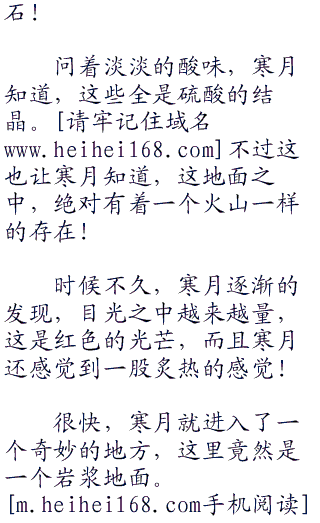 石！
问着淡淡的酸味，寒月
知道，这些全是硫酸的结
晶。[请牢记住域名
www.heihei168.com]不过这
也让寒月知道，这地面之
中，绝对有着一个火山一样
的存在！
时候不久，寒月逐渐的
发现，目光之中越来越量，
这是红色的光芒，而且寒月
还感觉到一股炙热的感觉！
很快，寒月就进入了一
个奇妙的地方，这里竟然是
一个岩浆地面。
[m.heihei168.com手机阅读]